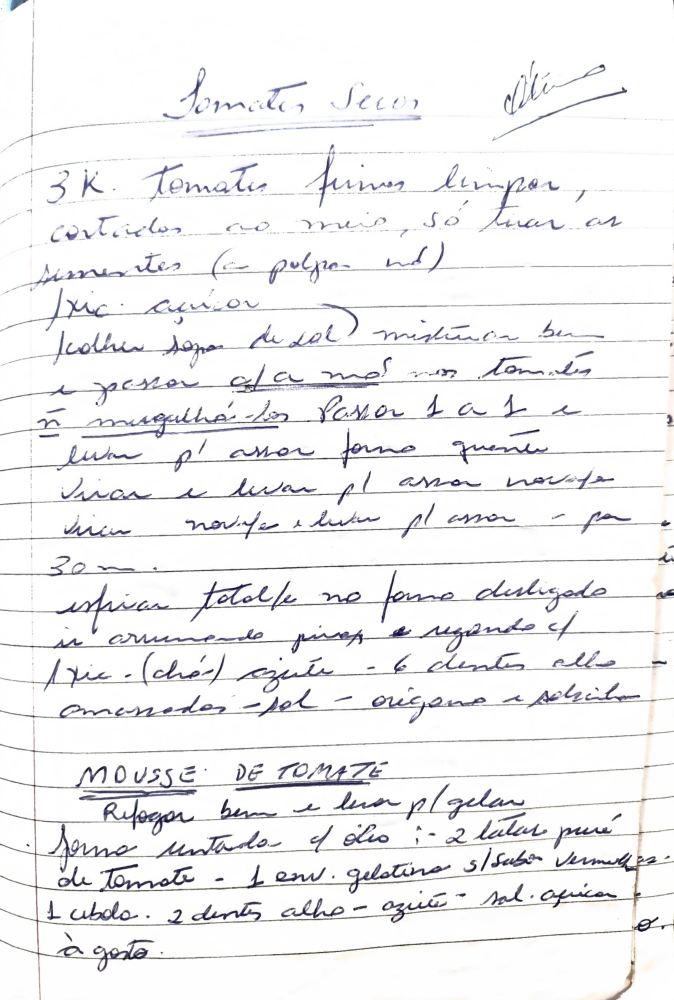 Tomates Secos Ótimo
3 K. tomates firmes limpar,
cortados ao meio, só tirar as
sementes (a polpa não)
1 xic. açúcar
1 colher sopa de sal) misturar bem
e passar c/ a mão nos tomates
ñ mergulhá-los Passar 1 a 1 e
levar p/ assar forno quente
virar e levar p/ assar nova/e
virar nova/e e levar p/ assar - por
30 m.
esfriar total/e no forno desligado
ir arrumando pirex e regando c/
1 xic. (chá) azeite - 6 dentes alho -
amassados - sal - orégano e salsinha
MOUSSE DE TOMATE
Refogar bem e levar p/ gelar
forma untada c/ óleo :- 2 latas purê
de tomate - 1 env. gelatina s/ sabor vermelha.
1 cebola. 2 dentes alho - azeite - sal. açúcar -
à gosto.